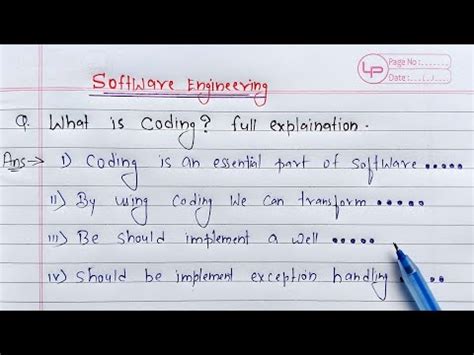 LP
Page No:......
Date: ...(.../...
Software Engineering
Q. What is Coding? full explaination.
Ans:-> I) Coding is an essential part of software •••••
II) By using Coding We Can transform •••••
III) Be should implement a well •••••
IV) Should be implement exception handling ••••